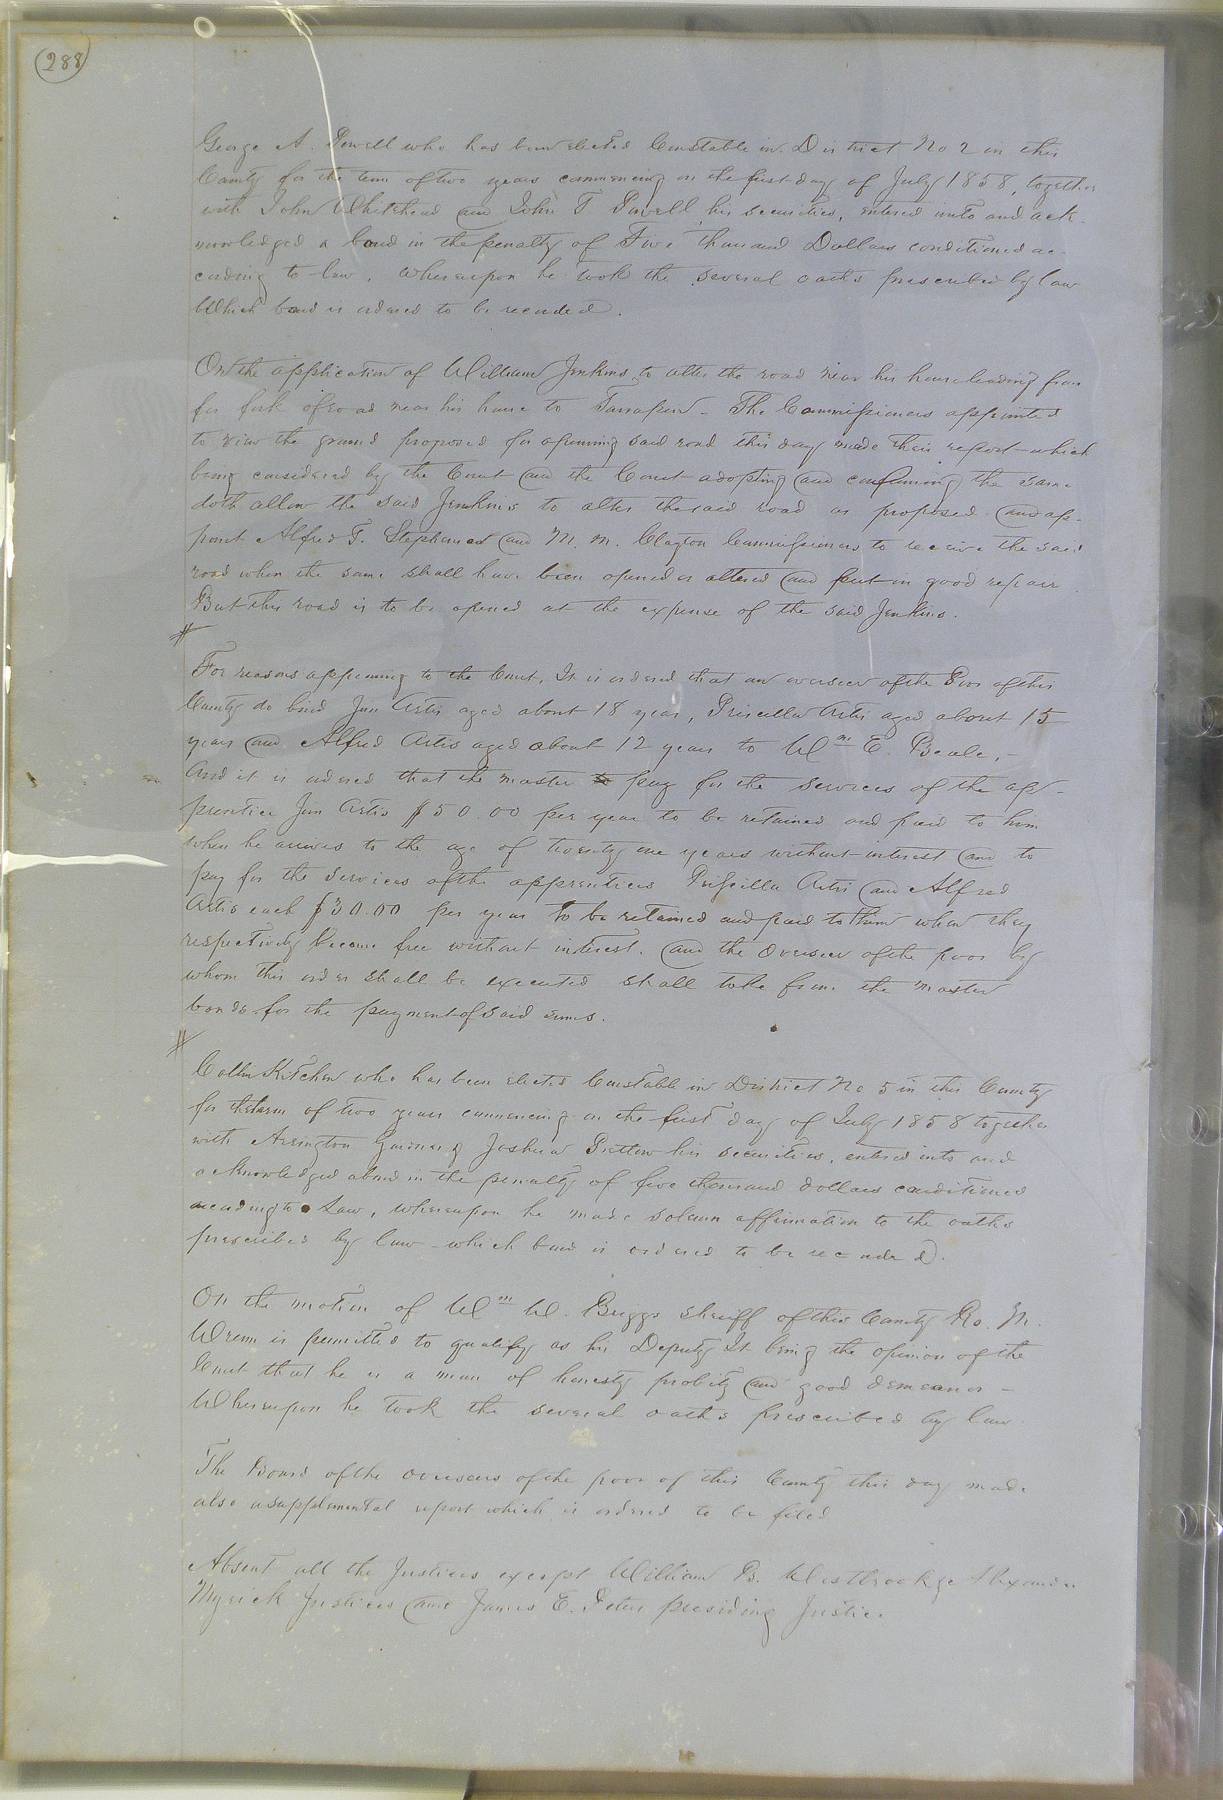 288
George A. Powell who has been elected Constable in District No 2 in this
County for the term of two years commencing on the first day of July 1858, together
with John Whitehead and John T Powell his securities, entered into and ack-
nowledged a bond in the penalty of Five thousand Dollars conditioned ac-
cording to law, whereupon he took the several oaths prescribed by law
Which bond is ordered to be recorded.
On the application of William Jenkins to alter the road near his house leading from
fork of road near his house to - The Commissioners appointed
to view the ground proposed for opening said road this day made their report - which
being considered by the Court and the Court adopting and confirming the same
doth allow the said Jenkins to alter the said road as proposed and ap-
point Alfred T. Stephenson and M. M. Clayton Commissioners to receive the said
road when the same shall have been opened or altered and put in good repair
But this road is to be opened at the expense of the said Jenkins.
#
For reasons appearing to the Court, It is ordered that an overseer of the Poor of this
County do bind Jim Artis aged about 18 year, Priscilla Artis aged about 15
years and Alfred Artis aged about 12 years to Wm E. Beale, -
And it is ordered that the master to pay for the services of the ap-
prentice Jim Artis $50.00 per year to be retained and paid to him
when he arrives to the age of twenty one years without interest and to
pay for the services of the apprentices Priscilla Artis and Alfred
Artis each $30.00 per year to be retained and paid to them when they
respectively become free without interest. and the Overseer of the poor by
whom this order shall be executed shall take from the master
bonds for the payment of said sums.
#
Collin Kitchen who has been elected Constable in District No 5 in this County
for the term of two years commencing on the first day of July 1858 together
with Arrington Joshua Pretlow his securities, entered into and
acknowledged a bond in the penalty of five thousand dollars conditioned
according to Law, whereupon he made solemn affirmation to the oaths
prescribed by law - which bond is ordered to be recorded.
On the motion of Wm W. Briggs sheriff of this County Ro. M.
Wrenn is permitted to qualify as his Deputy It being the opinion of the
Court that he is a man of honesty probity and good demeanor -
Whereupon he took the several oaths prescribed by law
The Board of the overseers of the poor of this County this day made
also a supplemental report which is ordered to be filed
Absent all the Justices except William B. Westbrook Alexander
Myrick Justices and James E. Peters presiding Justice.